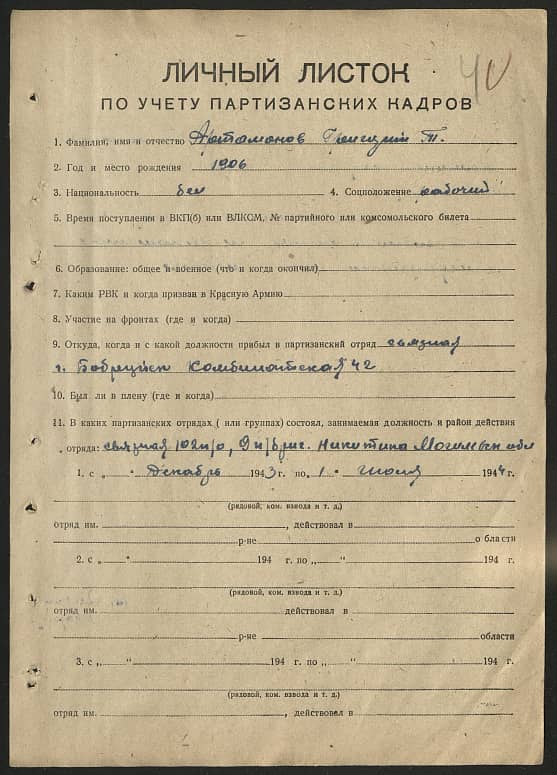 ЛИЧНЫЙ ЛИСТОК
ПО УЧЕТУ ПАРТИЗАНСКИХ КАДРОВ
1. Фамилия, имя и отчество Артамонов Григорий Т.
2. Год и место рождения 1906
3. Национальность бел 4. Соцположение рабочий
5. Время поступления в ВКП(б) или ВЛКСМ, № партийного или комсомольского билета
6. Образование: общее и военное (что и когда окончил)
7. Каким РВК и когда призван в Красную Армию
8. Участие на фронтах (где и когда)
9. Откуда, когда и с какой должности прибыл в партизанский отряд связная
г. Бобруйск Комбинатская 42
10. Был ли в плену (где и когда)
11. В каких партизанских отрядах ( или группах) состоял, занимаемая должность и район действия
отряда: связная 102 п/о, 9 п/бриг. Никитина Могилевск обл
1. с „ " Декабрь 1943 г. по „ 1 " июля 1944 г.
(рядовой, ком. взвода и т. д.)
отряд им. , действовал в
р-не области
2. с „ " 194 г. по „ " 194 г.
(рядовой, ком. взвода и т. д.)
отряд им. действовал в
р-не области
3. с „ " 194 г. по „ " 194 г.
(рядовой, ком. взвода и т. д.)
отряд им. , действовал в